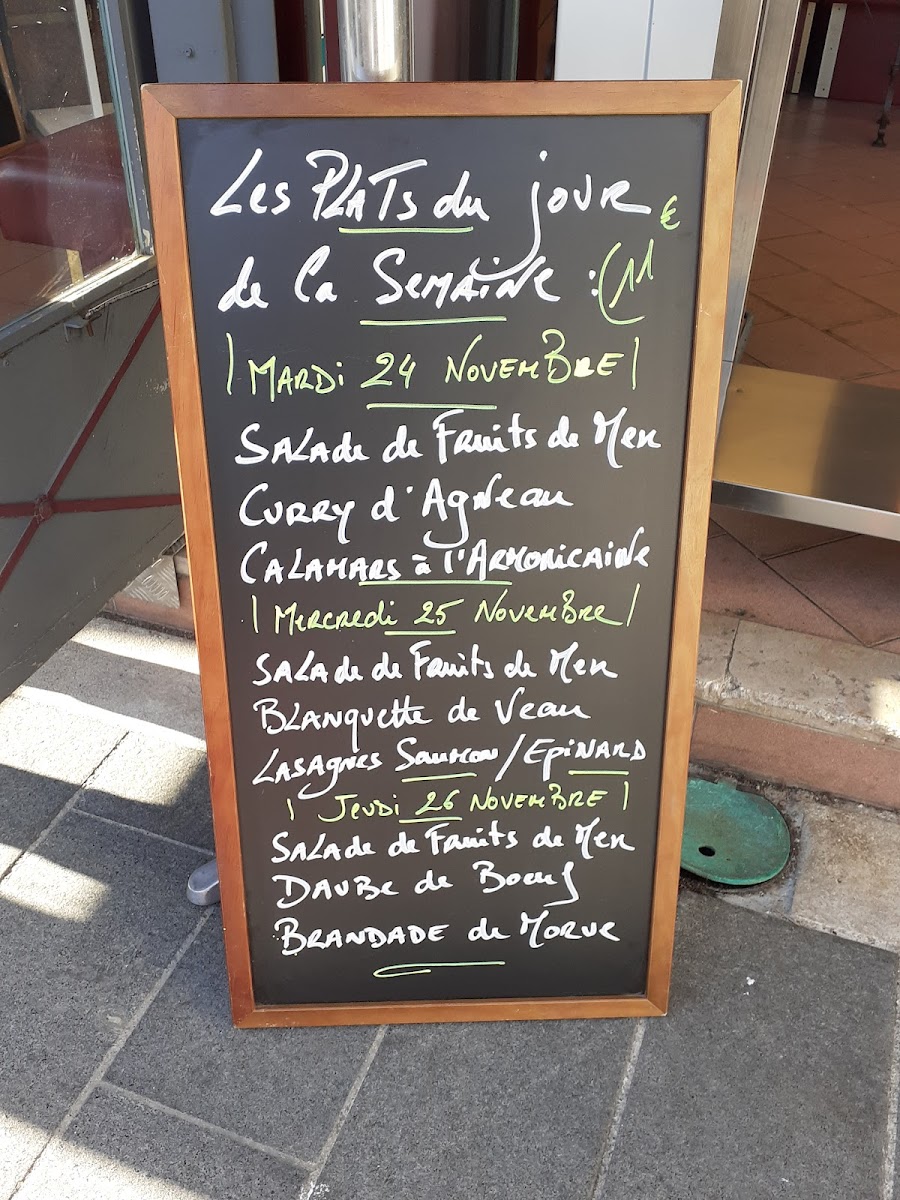 Les PLATS du jouR
de la SEMAiNE : (11€
MARDi 24 NOVEMBRE
SALAde de Fruits de Mer
CURRY d'Agneau
CALAMARS à l'ARMORICAiNE
Mercredi 25 NovemBre
SALAde de Fruits de Mer
BLANquette de Veau
LASAgnes Saumon / EpiNARD
JEUDi 26 NOVEMBRE
SALAde de Fruits de Mer
DAUBe de Boeuf
BRANDADE de MORUE